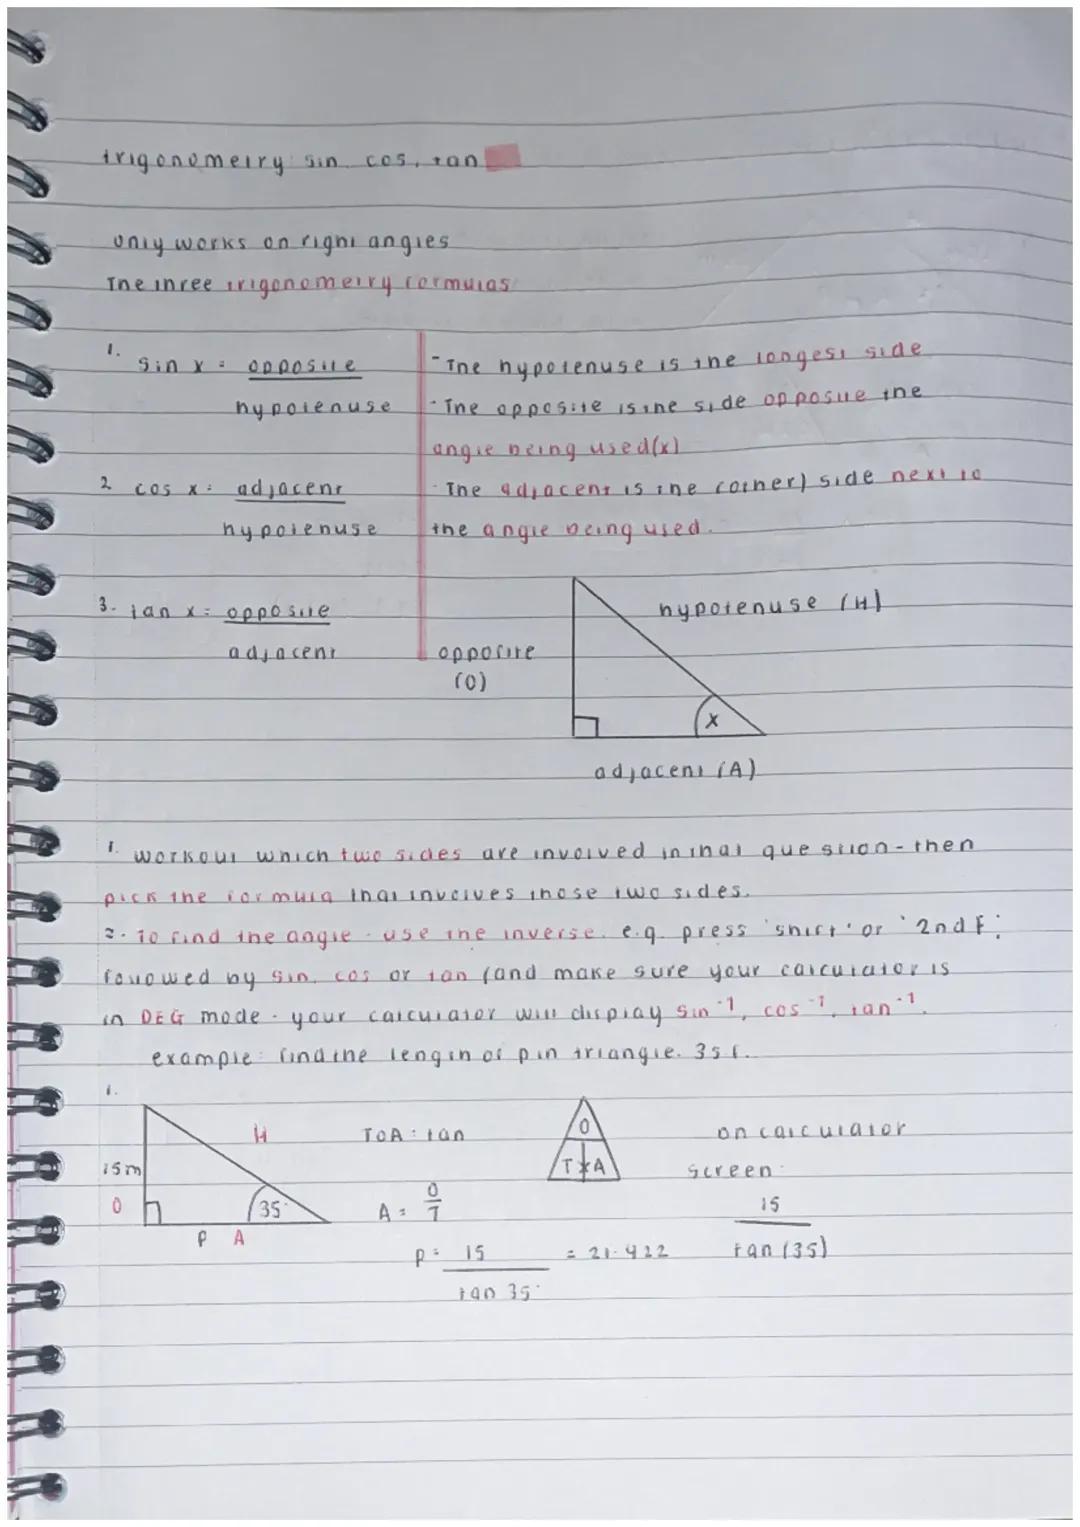 trigonometry: sin, cos, tan
only works on right angles
The three trigonometry formulas
1. sin x = opposite
hypotenuse
2 cos x = adjacent
hypotenuse
3. tan x = opposite
adjacent
- The hypotenuse is the longest side
- The opposite is the side opposite the
angle being used (x)
- The adjacent is the (corner) side next to
the angle being used.
opposite
(O)
hypotenuse (H)
x
adjacent (A)
1. workout which two sides are involved in that question - then
pick the formula that involves those two sides.
2. To find the angle - use the inverse. e.g. press 'shift' or '2ndF'
followed by sin, cos or tan (and make sure your calculator is
in DEG mode - your calculator will display sin⁻¹, cos⁻¹, tan⁻¹.
example: find the length of p in triangle. 3sf.
1.
15m
O
H
35°
P A
TOA: tan
A = O/T
p = 15
tan 35°
= 21.422
O
T x A
on calculator
screen:
15
tan (35)